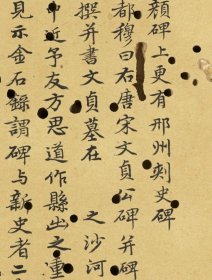 顏碑上更有邢州刺史碑
都穆曰右唐宋文貞公碑并碑
撰并書文貞墓在 之沙河
中近予友方思道作縣出之重
見示金石錄謂碑與新史者二